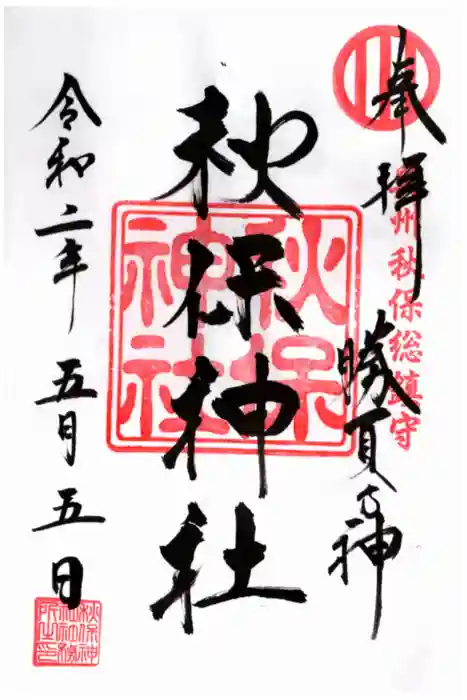 奉拝
勝負の神
州秋保総鎮守
秋保神社
秋保神社
令和二年五月五日
秋保神
社社務
所之印